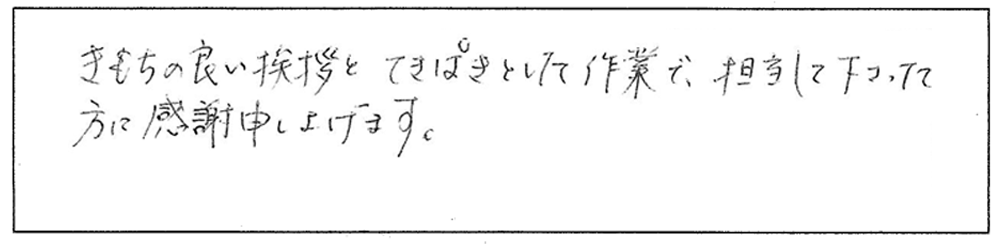 きもちの良い挨拶と てきぱきとした作業で、担当して下さった
方に感謝申し上げます。